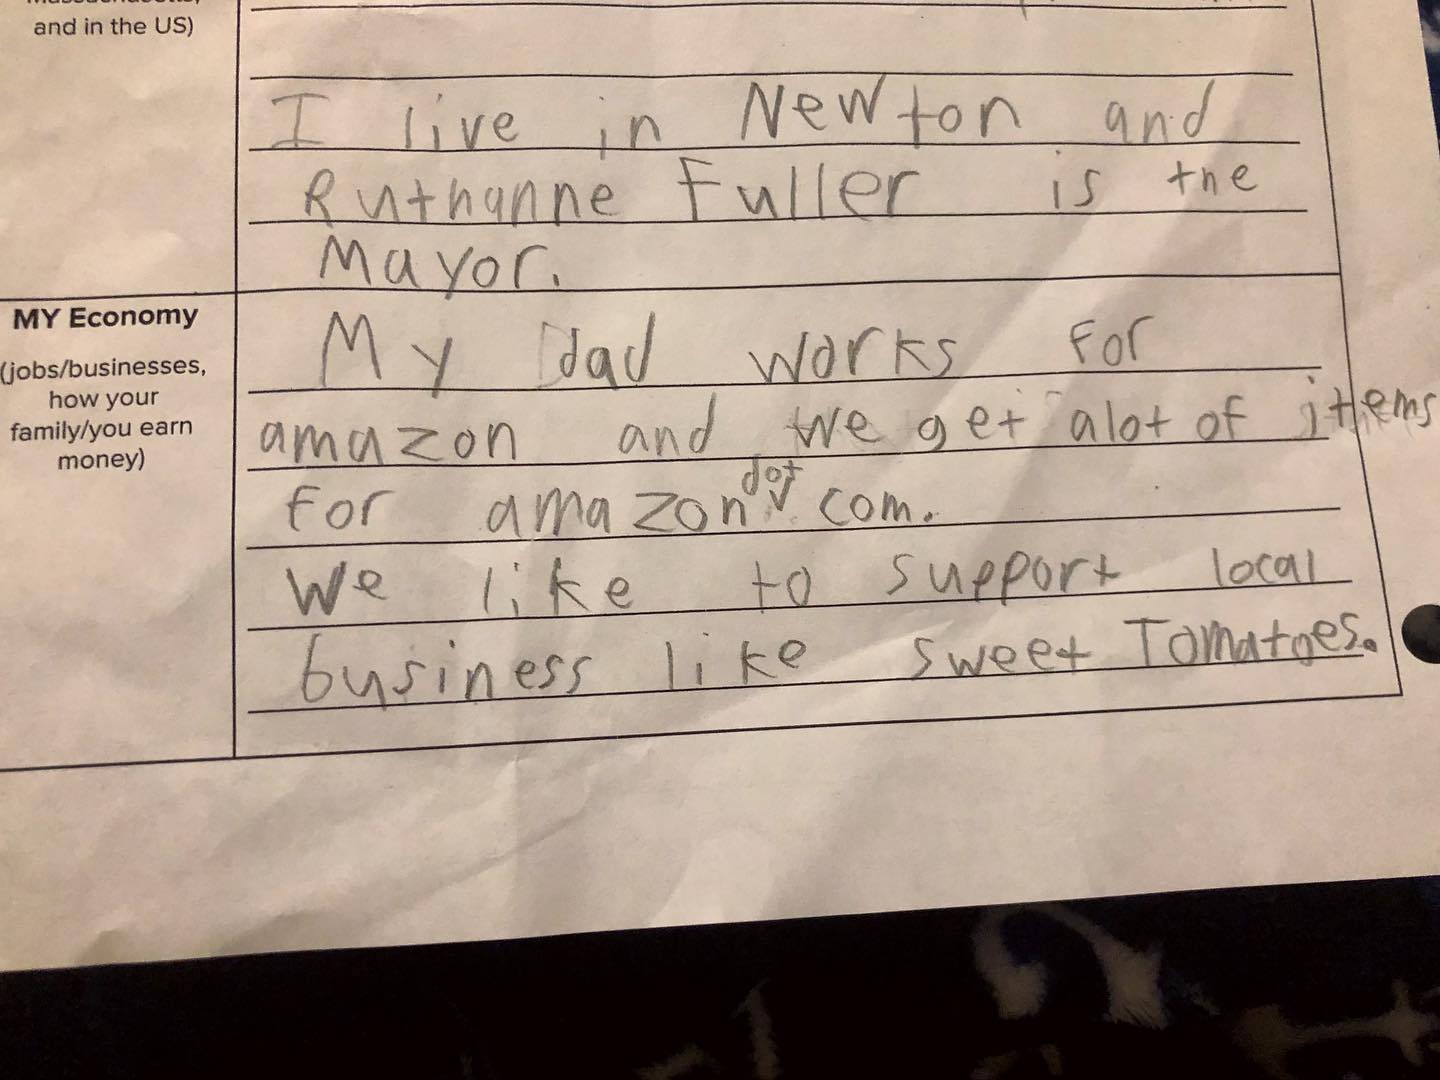 Massachusetts,
and in the US)
I live in Newton and
Ruthanne Fuller is the
Mayor.
MY Economy
(jobs/businesses,
how your
family/you earn
money)
My Dad works for
amazon and we get alot of items
for amazon dot com.
We like to support local
business like sweet Tomatoes.